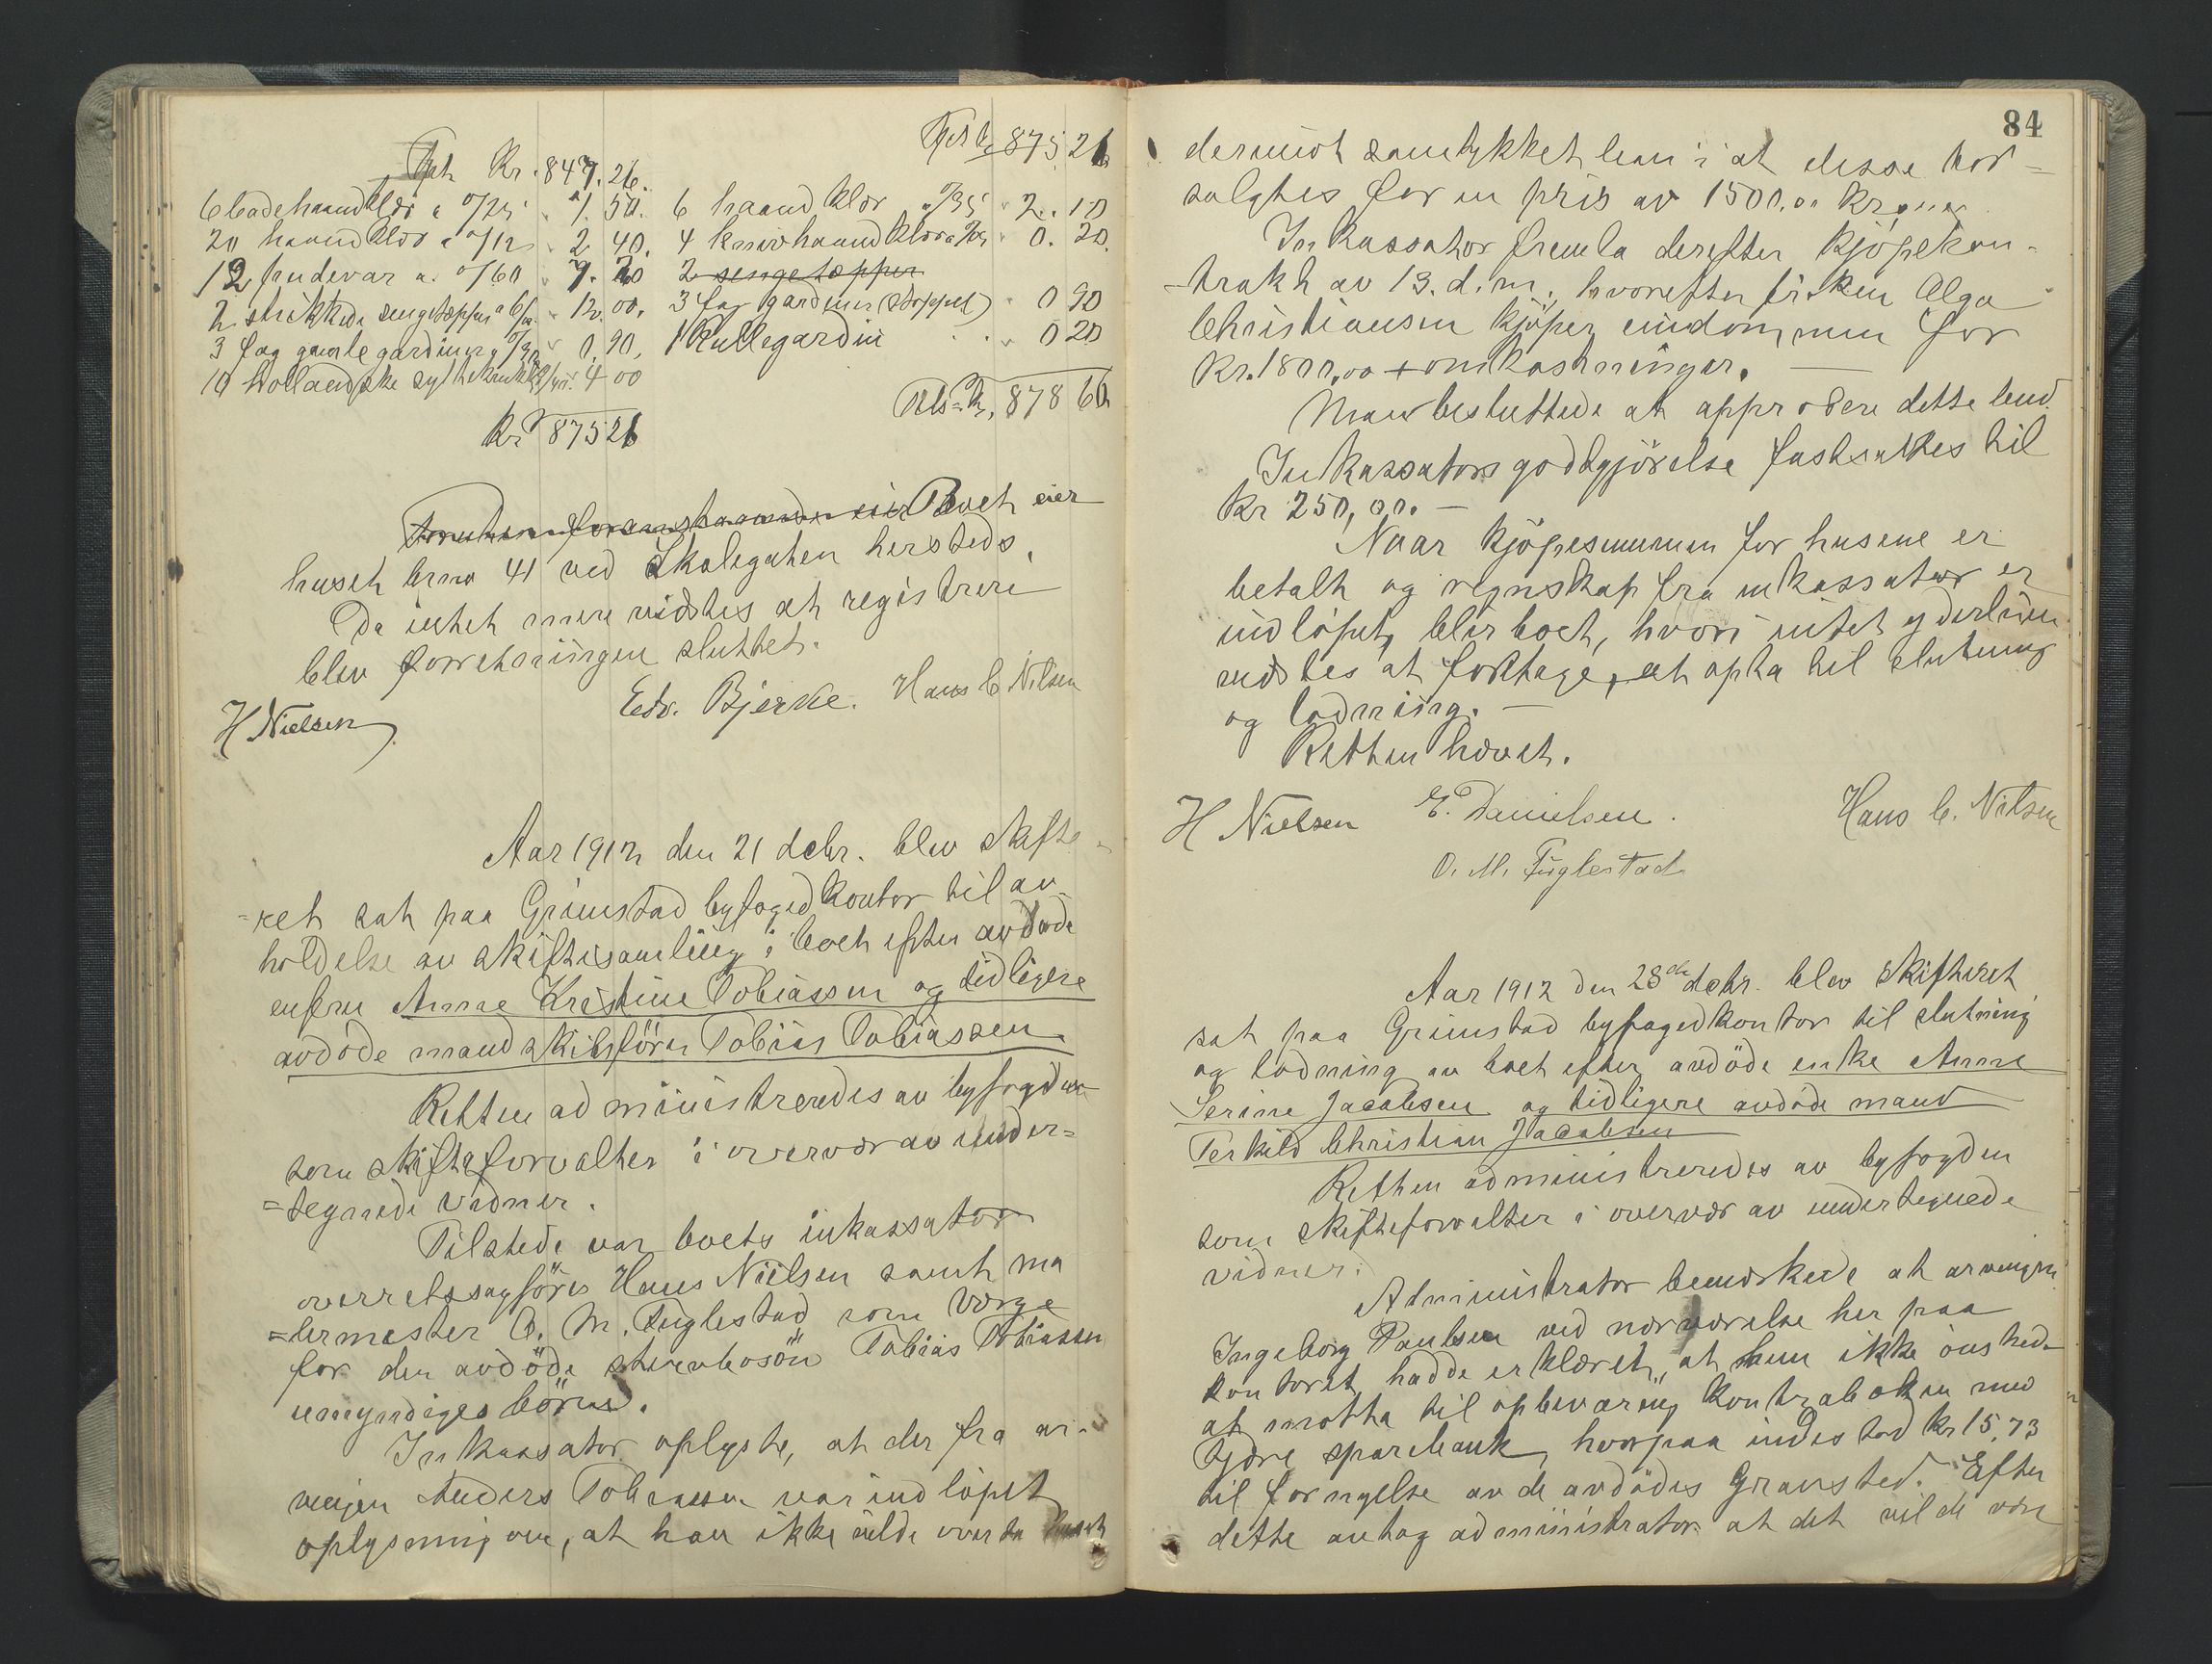 Tpt Kr. 847.26.
6 badehaandklær a 0/25 " 1.50.
20 haandklær a 0/12 " 2 40.
12 pudevar a. 0/60 " 7.20
2 strikkede sengetæpper a 6/00 " 12.00.
3 fag gamle gardiner a 0/30 " 0.90.
10 hollandske syltekrukker 4 00
Kr 875 26
Tpt Kr 875 26
6 haandklær a 0/35 " 2.10
4 knivhaandklær a 0/05 " 0.20.
2 sengetæpper
3 fag gardiner (stoppet) " 0 90
1 Rullegardin . . " 0 20
Kr. 878 60
Foruten foranstaaende eier Boet eier
huset brno 41 ved Skolegaten hersteds.
Da intet mere vidstes at registrere
blev forretningen sluttet.
H Nielsen Edv. Bjerke. Hans C. Nilsen
Aar 1912 den 21 decbr. blev skifte-
=ret sat paa Grimstad byfogedkontor til av-
holdelse av skiftesamling i boet efter avdøde
enkefru Anne Kristine Tobiassen og tidligere
avdöde mand skibsförer Tobias Tobiassen
Retten administreredes av byfogden
som skifteforvalter i overvær av under=
=tegnede vidner.
Tilstede var boets inkassator
overretssagförer Hans Nielsen samt ma
=lermester O. M. Fuglestad som Værge
for den avdöde stervbosön Tobias Tobiassens
umyndiges börn.
Inkassator oplyste, at der fra ar-
vingen Anders Tobiassen var indlöpet
oplysning om, at han ikke vilde overta huset
84
derimot samtykket han i at disse bor=
solgtes for en pris av 1500.00 kroner
Inkassator fremla derefter kjöpekon-
-trakt av 13. d.m., hvorefter fröken Olga
Christiansen kjöper eiendommen for
Kr. 1800,00 + omkostninger. —
Man besluttede at approbere dette bud.
Inkassators godtgjörelse fastsattes til
Kr 250,00. —
Naar kjöpesummen for husene er
betalt og regnskap fra inkassator er
indlöpet, blir boet, hvori intet yderligere
vidstes at foretage, at opta til slutning
og lodning. —
Retten hævet.
H Nielsen E. Danielsen. Hans C. Nilsen
O. M. Fuglestad
Aar 1912 den 28de decbr. blev Skifteret
sat paa Grimstad byfogedkontor til slutning
og lodning av boet efter avdöde enke Anne
Serine Jacobsen og tidligere avdöde mand
Terkild Christian Jacobsen
Retten administreredes av byfogden
som skifteforvalter i overvær av undertegnede
vidner.
Administrator bemærkede at arvingen
Ingeborg Paulsen ved nærværelse her paa
kontoret hadde erklæret, at hun ikke önskede
at motta til opbevaring kontraboken med
Fjære sparebank, hvorpaa indestod kr 15,73
til fornyelse av de avdödes Gravsted. Efter
dette antog administrator at det vilde være